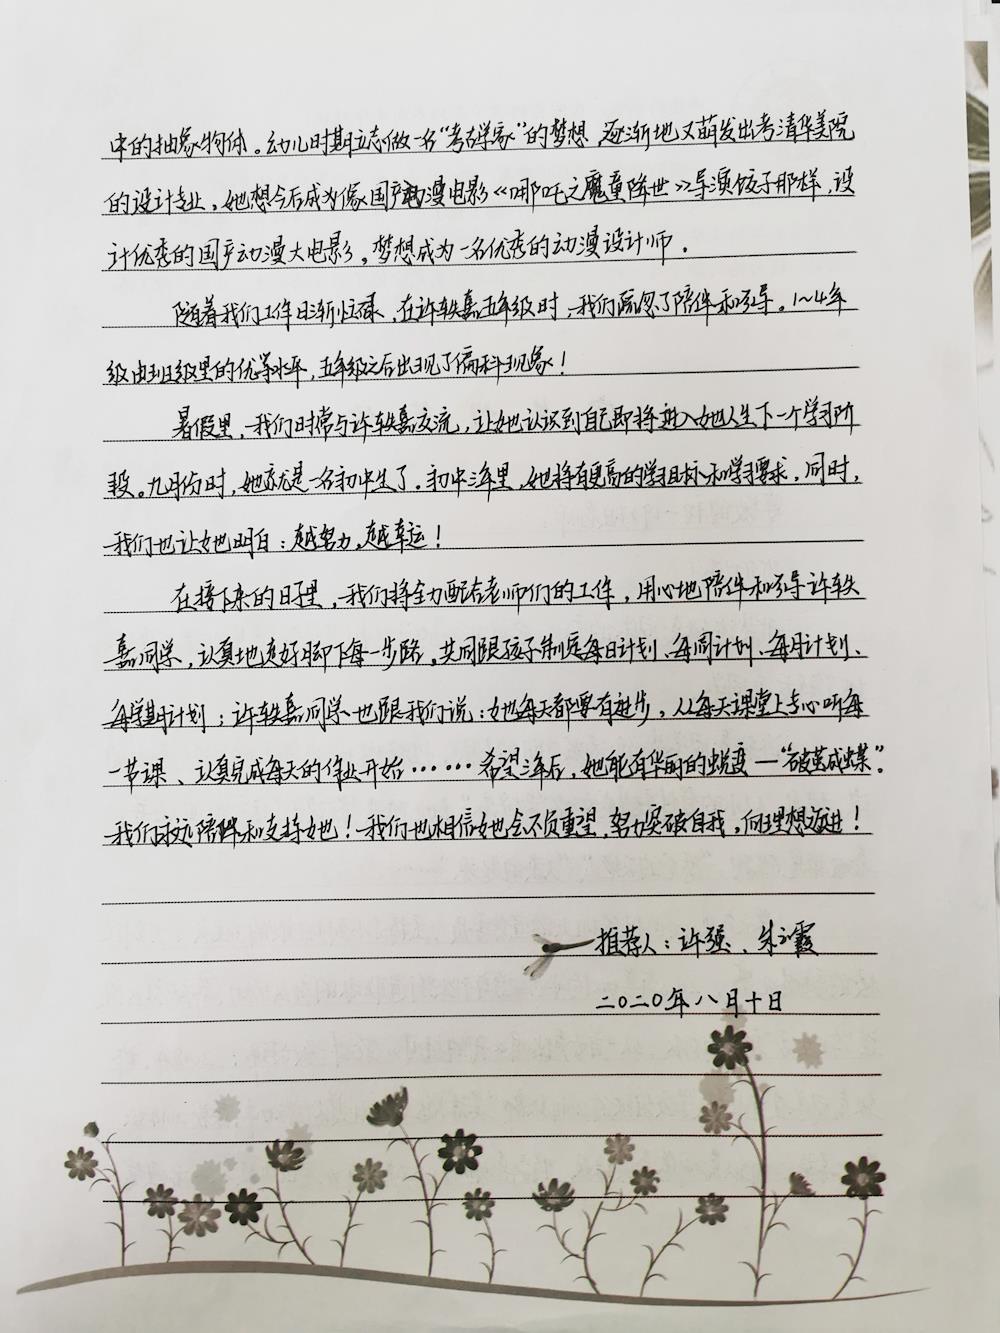 中的抽象物体。幼儿时期立志做一名“考古学家”的梦想,逐渐地又萌发出考清华美院
的设计专业,她想今后成为像国产动漫电影《哪吒之魔童降世》导演饺子那样,设
计优秀的国产动漫大电影,梦想成为一名优秀的动漫设计师。
随着我们工作日渐忙碌,在许轶嘉五年级时,我们疏忽了陪伴和引导。1~4年
级由班级里的优等水平,五年级之后出现了偏科现象!
暑假里,我们时常与许轶嘉交流,让她认识到自己即将进入她人生下一个学习阶
段。九月份时,她就是一名初中生了。初中三年里,她将有更高的学习目标和学习要求,同时,
我们也让她明白:越努力,越幸运!
在接下来的日子里,我们将全力配合老师们的工作,用心地陪伴和引导许轶
嘉同学,认真地走好脚下每一步路,共同跟孩子制定每日计划、每周计划、每月计划、
每学期计划;许轶嘉同学也跟我们说:她每天都要有进步,从每天课堂上专心听每
一节课、认真完成每天的作业开始……希望三年后,她能有华丽的蜕变—“破茧成蝶”。
我们永远陪伴和支持她!我们也相信她会不负重望,努力突破自我,向理想迈进!
推荐人:许强、朱云霞
二〇二〇年八月十日